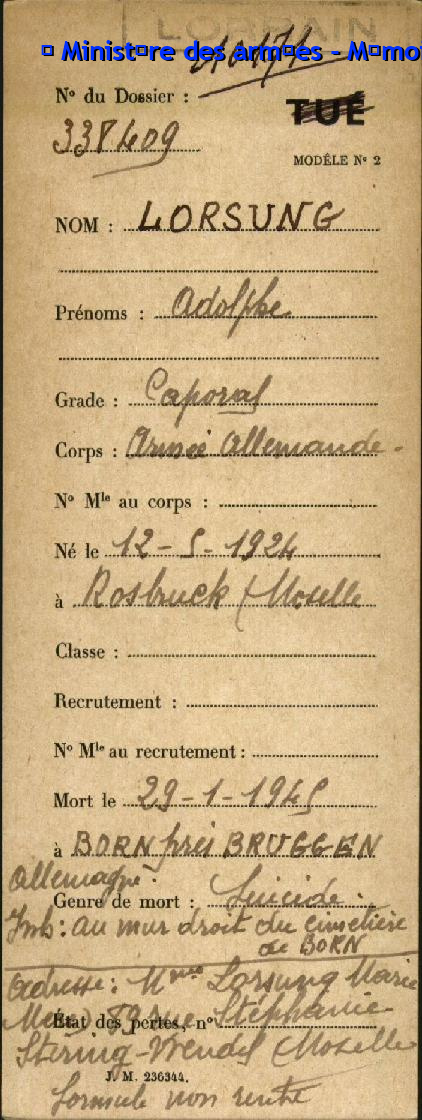 LORRAIN
© Ministère des armées - Mémo
40171
N° du Dossier :
TUÉ
338409
MODÈLE N° 2
NOM : LORSUNG
Prénoms : Adolphe
Grade : Caporal
Corps : Armée Allemande -
N° Mle au corps :
Né le 12-5-1924
à Rosbruck (Moselle
Classe :
Recrutement :
N° Mle au recrutement :
Mort le 29-1-1945
à BORN près BRUGGEN
Allemagne.
Genre de mort : Suicide.
Inh: au mur droit du cimetière
de BORN
Adresse: Mme Lorsung Marie
(Mère) 89 rue Stéphanie
État des pertes, n°
Stiring-Wendel (Moselle
J. M. 236344.
formule non rentré